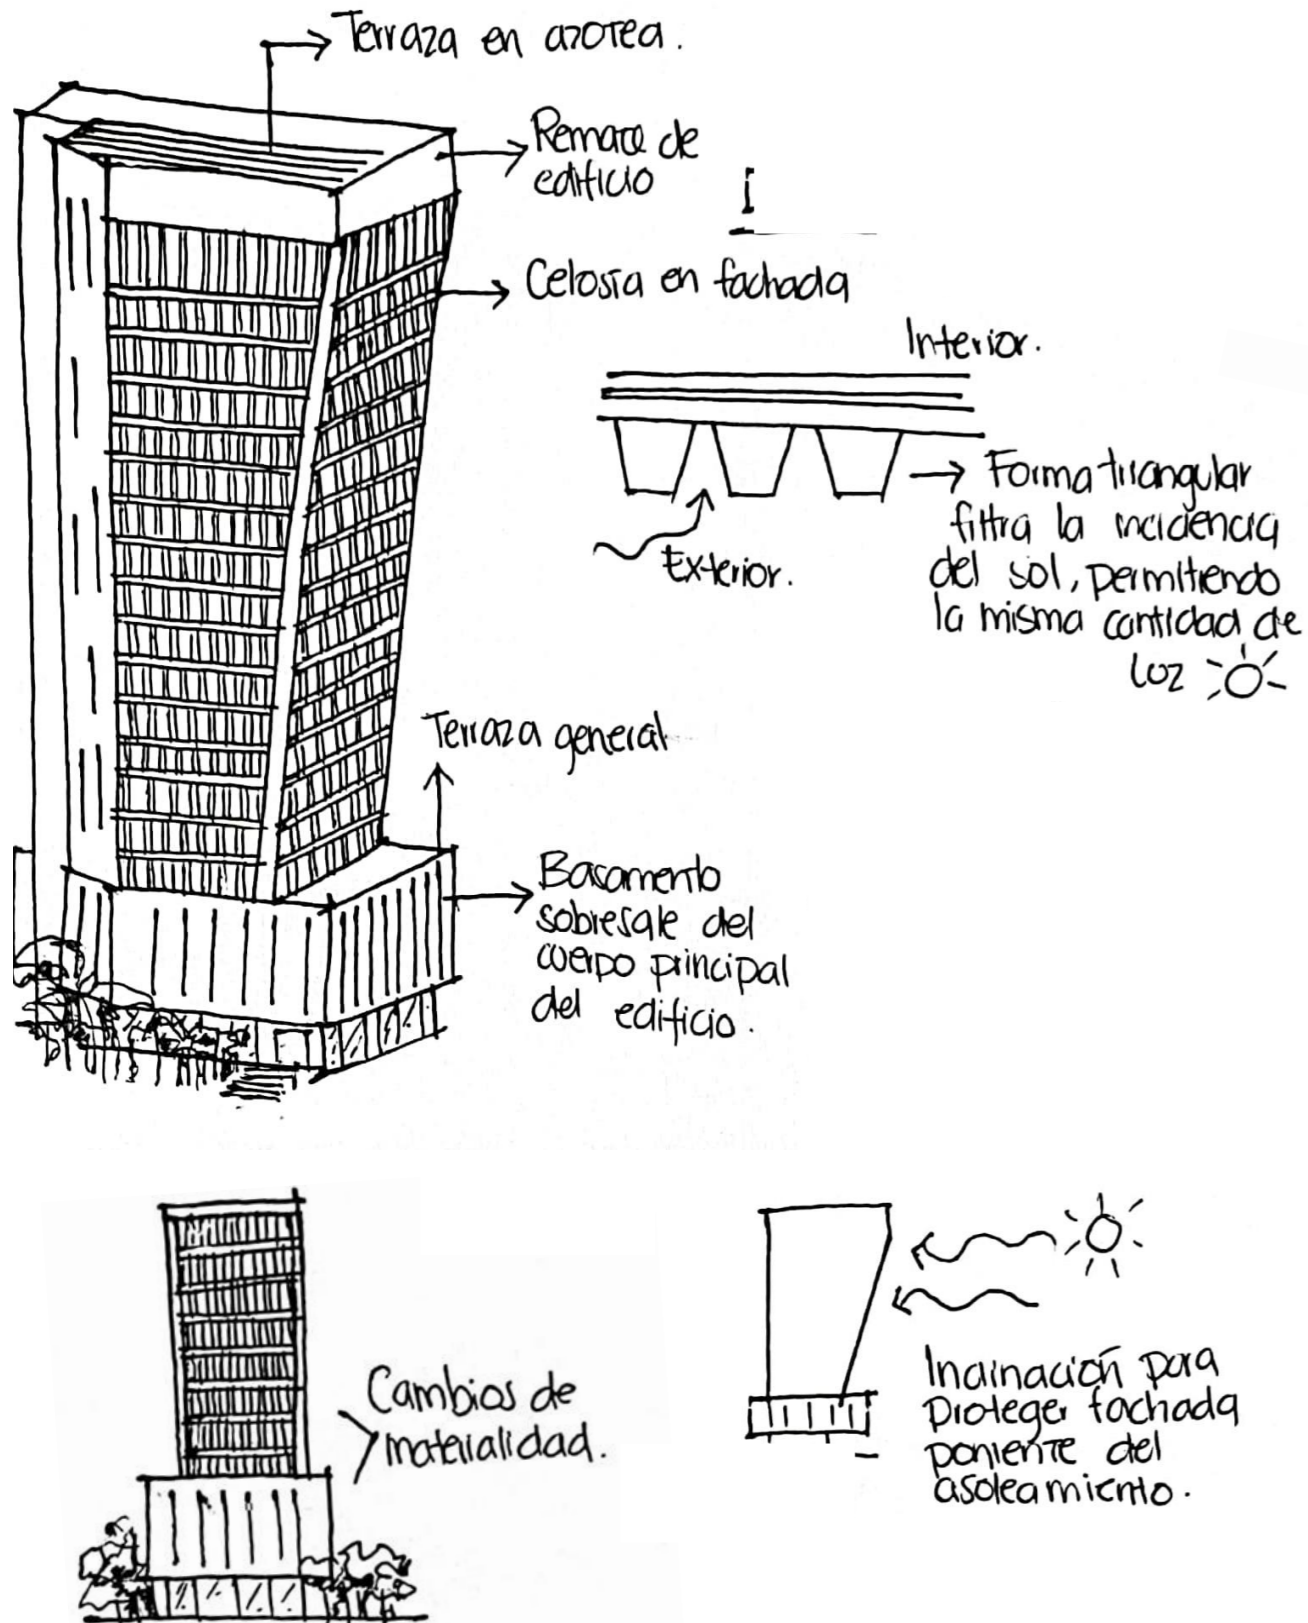 Terraza en azotea.
Remate de
edificio
Celosía en fachada
Interior.
Forma triangular
filtra la incidencia
del sol, permitiendo
la misma cantidad de
luz
Exterior.
Terraza general
Basamento
sobresale del
cuerpo principal
del edificio.
Cambios de
materialidad.
Inclinación para
proteger fachada
poniente del
asoleamiento.